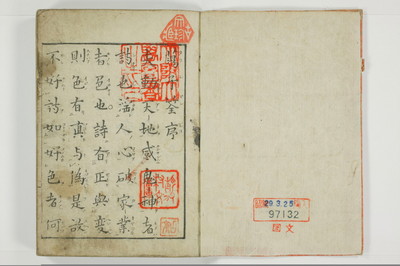 全序
天地感鬼神者
詩也滛人心破家業
者色也詩有正與變
則色有真与偽是故
不好詩如好色者何
29.3.25
97132
国文